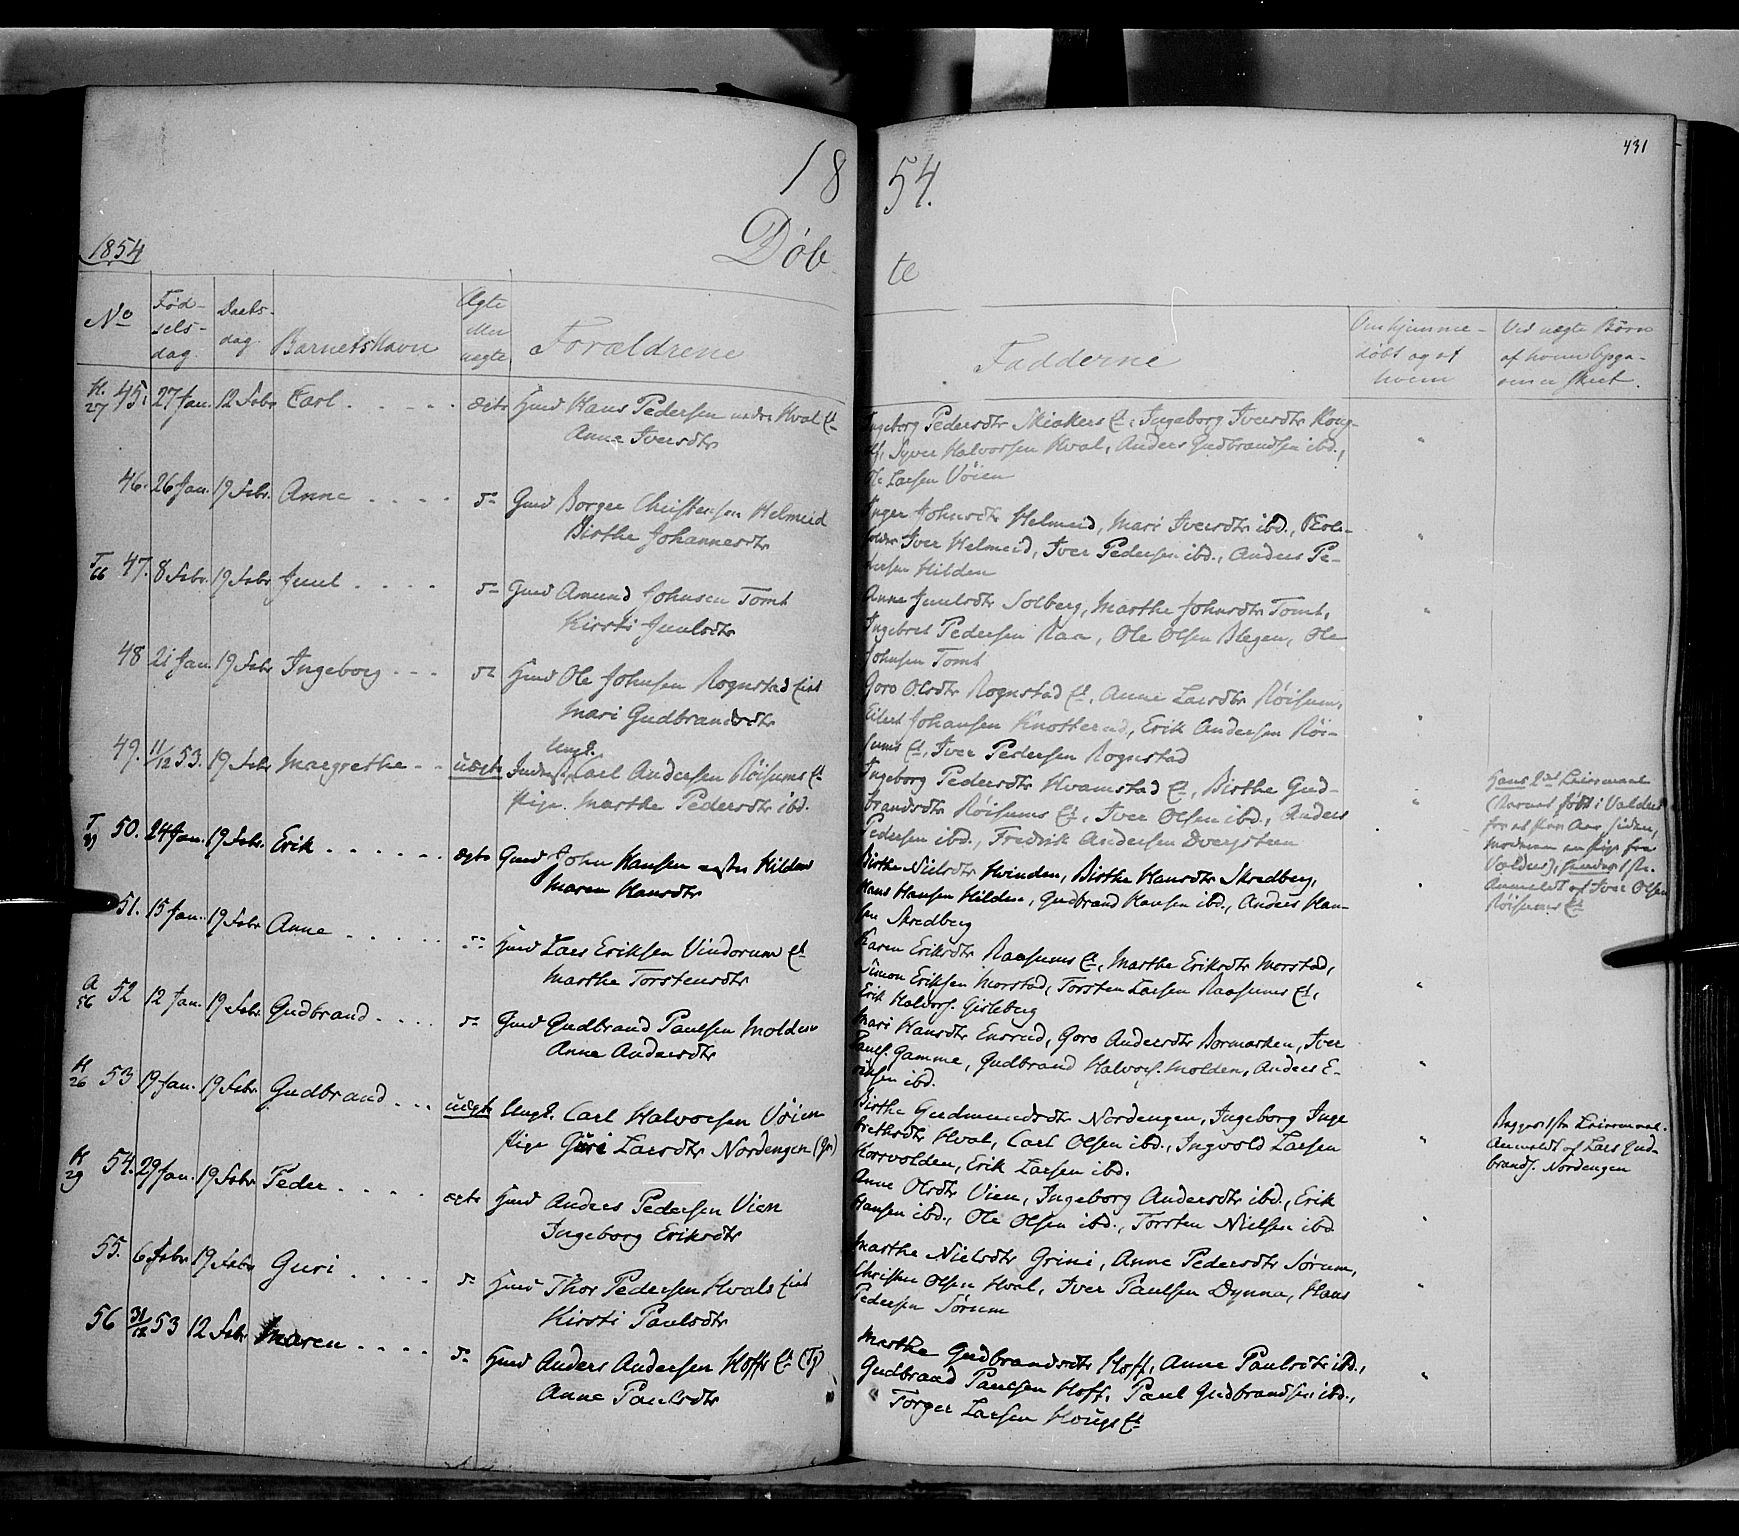 431
18 54.
Døb te
1854
No
Fød-
sels-
dag.
Daabs-
dag.
Barnets Navn
Ægte
eller
uægte
Forældrene
Fadderne
Om hjemme-
døbt og af
hvem
Ved uægte Børn
af hvem Opga-
ven er skeet.
H. 27 45. 27 Jan. 12 Febr Carl . . . . ægte Gmd Hans Pedersen nedre Hval Et
Anne Iversdtr
Ingeborg Pedersdtr Skiakers Et, Ingeborg Iversdtr
Syver Halvorsen Hval, Anders Gudbrandsen ibd.,
Ole Larsen Vøien
46. 26 Jan. 19 Febr. Anne . . . . do Gmd Borger Christensen Helmeid
Birthe Johannesdtr
Inger Johnsdtr Helmeid, Mari Iversdtr ibd.,
Iver Helmeid, Iver Pedersen ibd., Anders Pe-
dersen Hilden
T 66 47. 8 Febr. 19 Febr Juul . . . . do Gmd Amund Johnsen Tomt
Kirsti Juulsdtr
Anne Juulsdtr Solberg, Marthe Johnsdtr Tomt,
Ingebret Pedersen Raa, Ole Olsen Blegen, Ole
Johnsen Tomt
48 21 Jan. 19 Febr Ingeborg . . . do Hmd Ole Johnsen Rognstad Eiet
Mari Gudbrandsdtr
Goro Olsdtr Rognstad Et, Anne Larsdtr Røisum,
Eilert Johansen Knotterud, Erik Andersen Røi-
sums Et, Iver Pedersen Rognstad
49. 11/12 53. 19 Febr Margrethe . . uægte Ungk. Carl Andersen Røisums Et
Pige Marthe Pedersdtr ibd.
Ingeborg Pedersdtr Hvamstad Et, Birthe Gud-
brandsdtr Røisums Et, Iver Olsen ibd., Anders
Pedersen ibd., Fredrik Andersen Dvergsteen
Hans 2det Leiermaal
(Barnet født i Valders
for et Par Aar siden,
Moderen en Pige fra
Valders), hendes 1ste.
Anmeldt af Iver Olsen
Røisums Et
T 50. 24 Jan. 19 Febr. Erik . . . . . . ægte Gmd John Hansen Hilden
Maren Hansdtr
Birthe Nielsdtr Hvinden, Birthe Hansdtr Skredberg,
Hans Hansen Hilden, Gudbrand Hansen ibd., Anders Han-
sen Skredberg
51. 15 Jan. 19 Febr Anne . . . . . do Hmd Lars Eriksen Vindorum Et
Marthe Torstensdtr
Karen Eriksdtr Raasums Et, Marthe Eriksdtr Morstad,
Simon Eriksen Morstad, Torsten Larsen Raasums Et,
Erik Halvors. Gisleberg
A 56 52 12 Jan. 19 Febr. Gudbrand . . . . do Gmd Gudbrand Paulsen Molden
Anne Andersdtr
Mari Hansdtr Ensrud, Goro Andersdtr Bormarken, Iver
Pauls. Gamme, Gudbrand Halvors. Molden, Anders E-
riksen ibd.
H 26 53 19 Jan. 19 Febr. Gudbrand . . . uægte Ungk. Carl Halvorsen Vøien
Pige Guri Larsdtr Nordengen (Gr)
Birthe Gudmundsdtr Nordengen, Ingeborg Inge
brethsdtr Hval, Carl Olsen ibd., Ingvold Larsen
Horvolden, Erik Larsen ibd.
Begges 1ste Leiermaal.
Anmeldt af Lars Gud-
brands. Nordengen
H 29 54. 29 Jan. 19 Febr. Peder . . . . ægte Hmd Anders Pedersen Vien
Ingeborg Eriksdtr
Anne Olsdtr Vien, Ingeborg Andersdtr ibd., Erik
Hansen ibd., Ole Olsen ibd., Torsten Nielsen ibd
55. 6 Febr 19 Febr Guri . . . . do Hmd Thor Pedersen Hvals Eiet
Kirsti Paulsdtr
Marthe Nielsdtr Grini, Anne Pedersdtr Sørum,
Christen Olsen Hval, Iver Paulsen Dynna, Hans
Pedersen Sørum
56 31/12 53 12 Febr Maren . . . . do Hmd Anders Andersen Hoffs Et (Tj)
Anne Paulsdtr
Marthe Gudbrandsdtr Hoff, Anne Paulsdtr ibd.,
Gudbrand Paulsen Hoff, Paul Gudbrandsen ibd.,
Torger Larsen Hougs Et